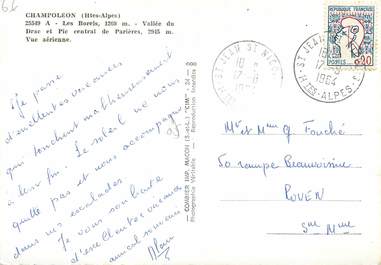 CHAMPOLEON (Htes-Alpes)
25549 A - Les Borels, 1269 m. - Vallée du
Drac et Pic central de Parières, 2945 m.
Vue aérienne.
Je passe
d'excellentes vacances
qui touchent malheureusement
à leur fin. Le soleil ne nous
quitte pas et nous accompagne
dans nos escalades
Je vous souhaite
d'excellentes vacances
amicalement
COMBIER IMP. MACON (S.-et-L.) "CIM"
Photographie Véritable - Reproduction Interdite
ST JEAN ST NICOLAS
17-8
1964
Htes-ALPES
POSTES
0,20
Mr et Mme G. Fouché
50 groupe Beauvoisine
ROUEN
Sne Mme